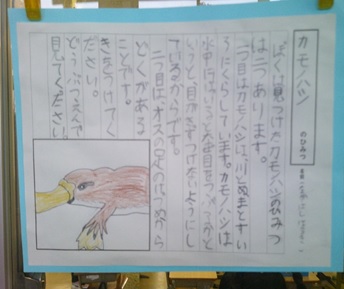 カモノハシ
のひみつ
ぼくは見つけたカモノハシのひみつ
は二つあります。
一つ目はカモノハシは、川とぬまとすい
ろにくらしています。カモノハシは
水中には いると目をつぶって
目がきずつけないようにし
ているからです。
二つ目は、オスの つめから
どくがある
ことです。
きをつけてく
ださい。
どうぶつえんで
見てください。